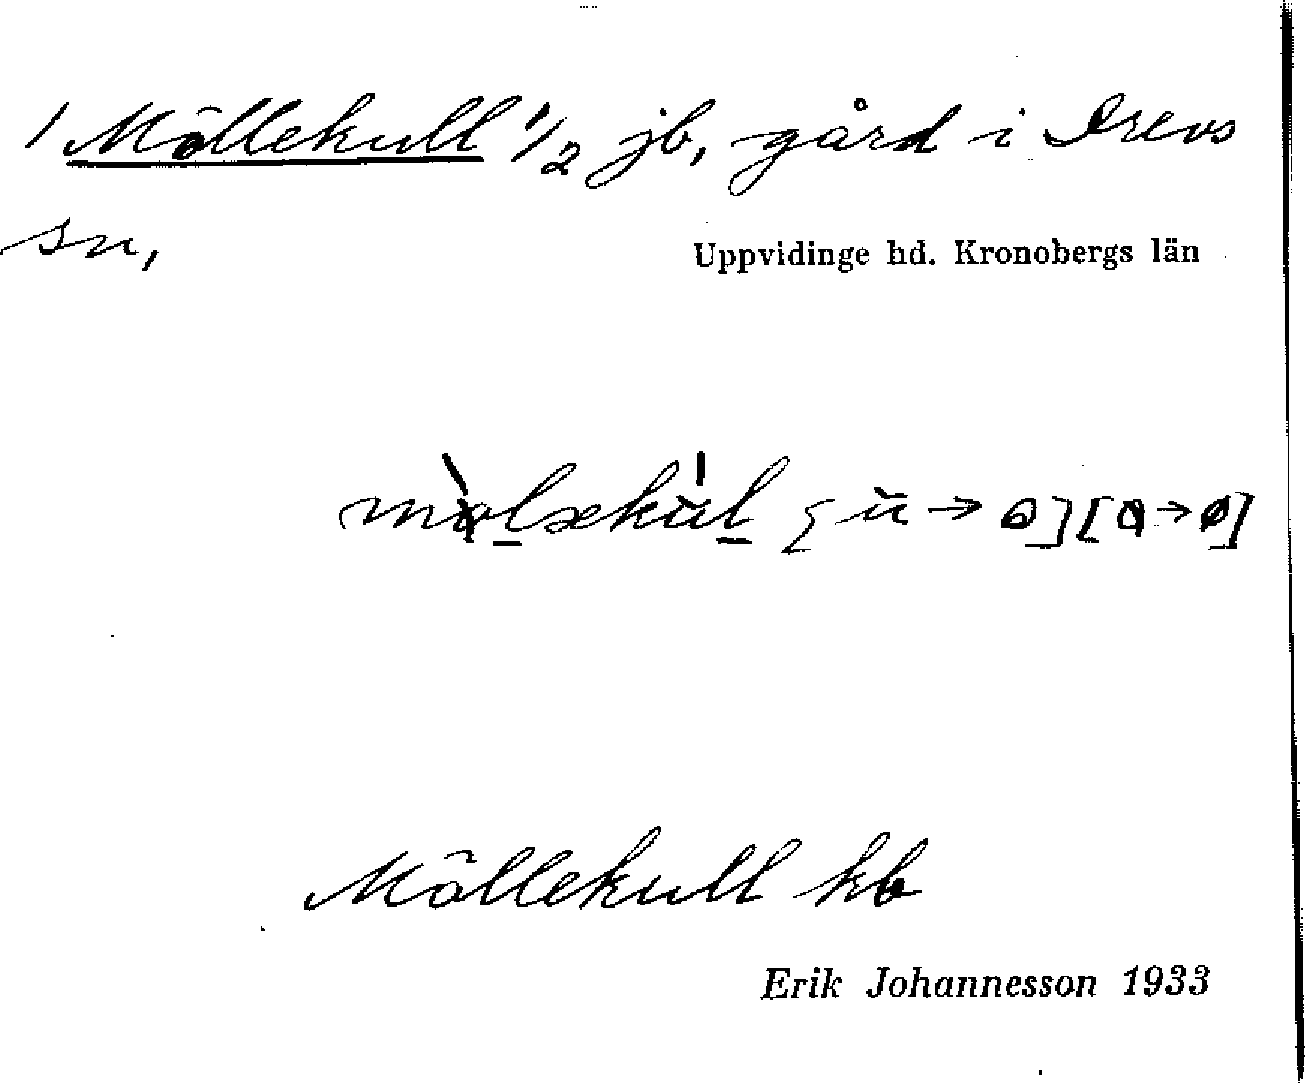 1 Möllekull 1/2 jb, gård i Drevs
sn,
Uppvidinge hd. Kronobergs län
Möllekull kb
Erik Johannesson 1933